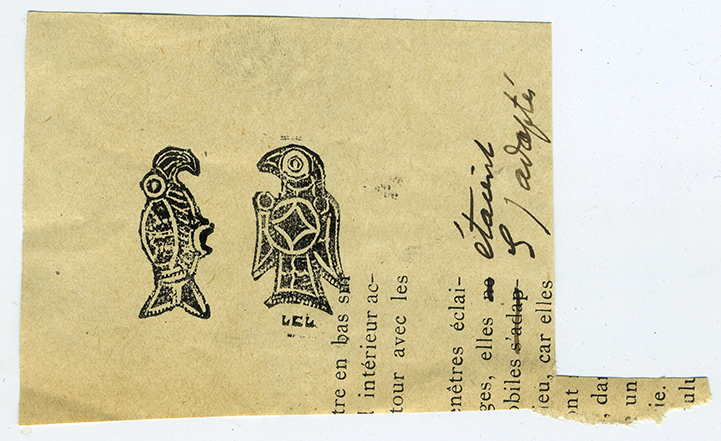 LEL
tre en bas sur
intérieur ac-
tour avec les
enêtres éclai-
ges, elles ne étaient
obiles s'adap- s / adaptés
ieu, car elles
ont
un
ie.
ulu